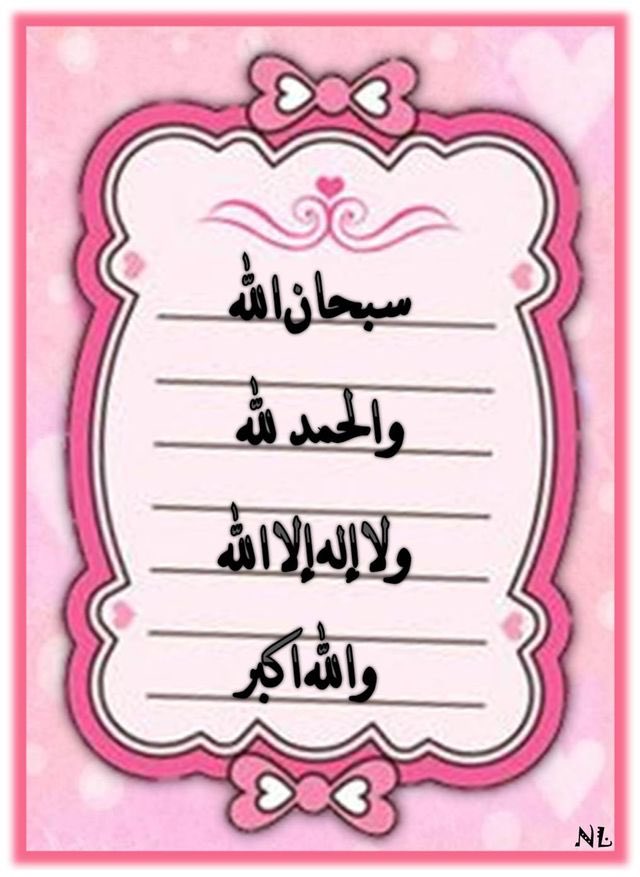 سبحان الله
والحمد لله
ولا إله إلا الله
والله اكبر
NL